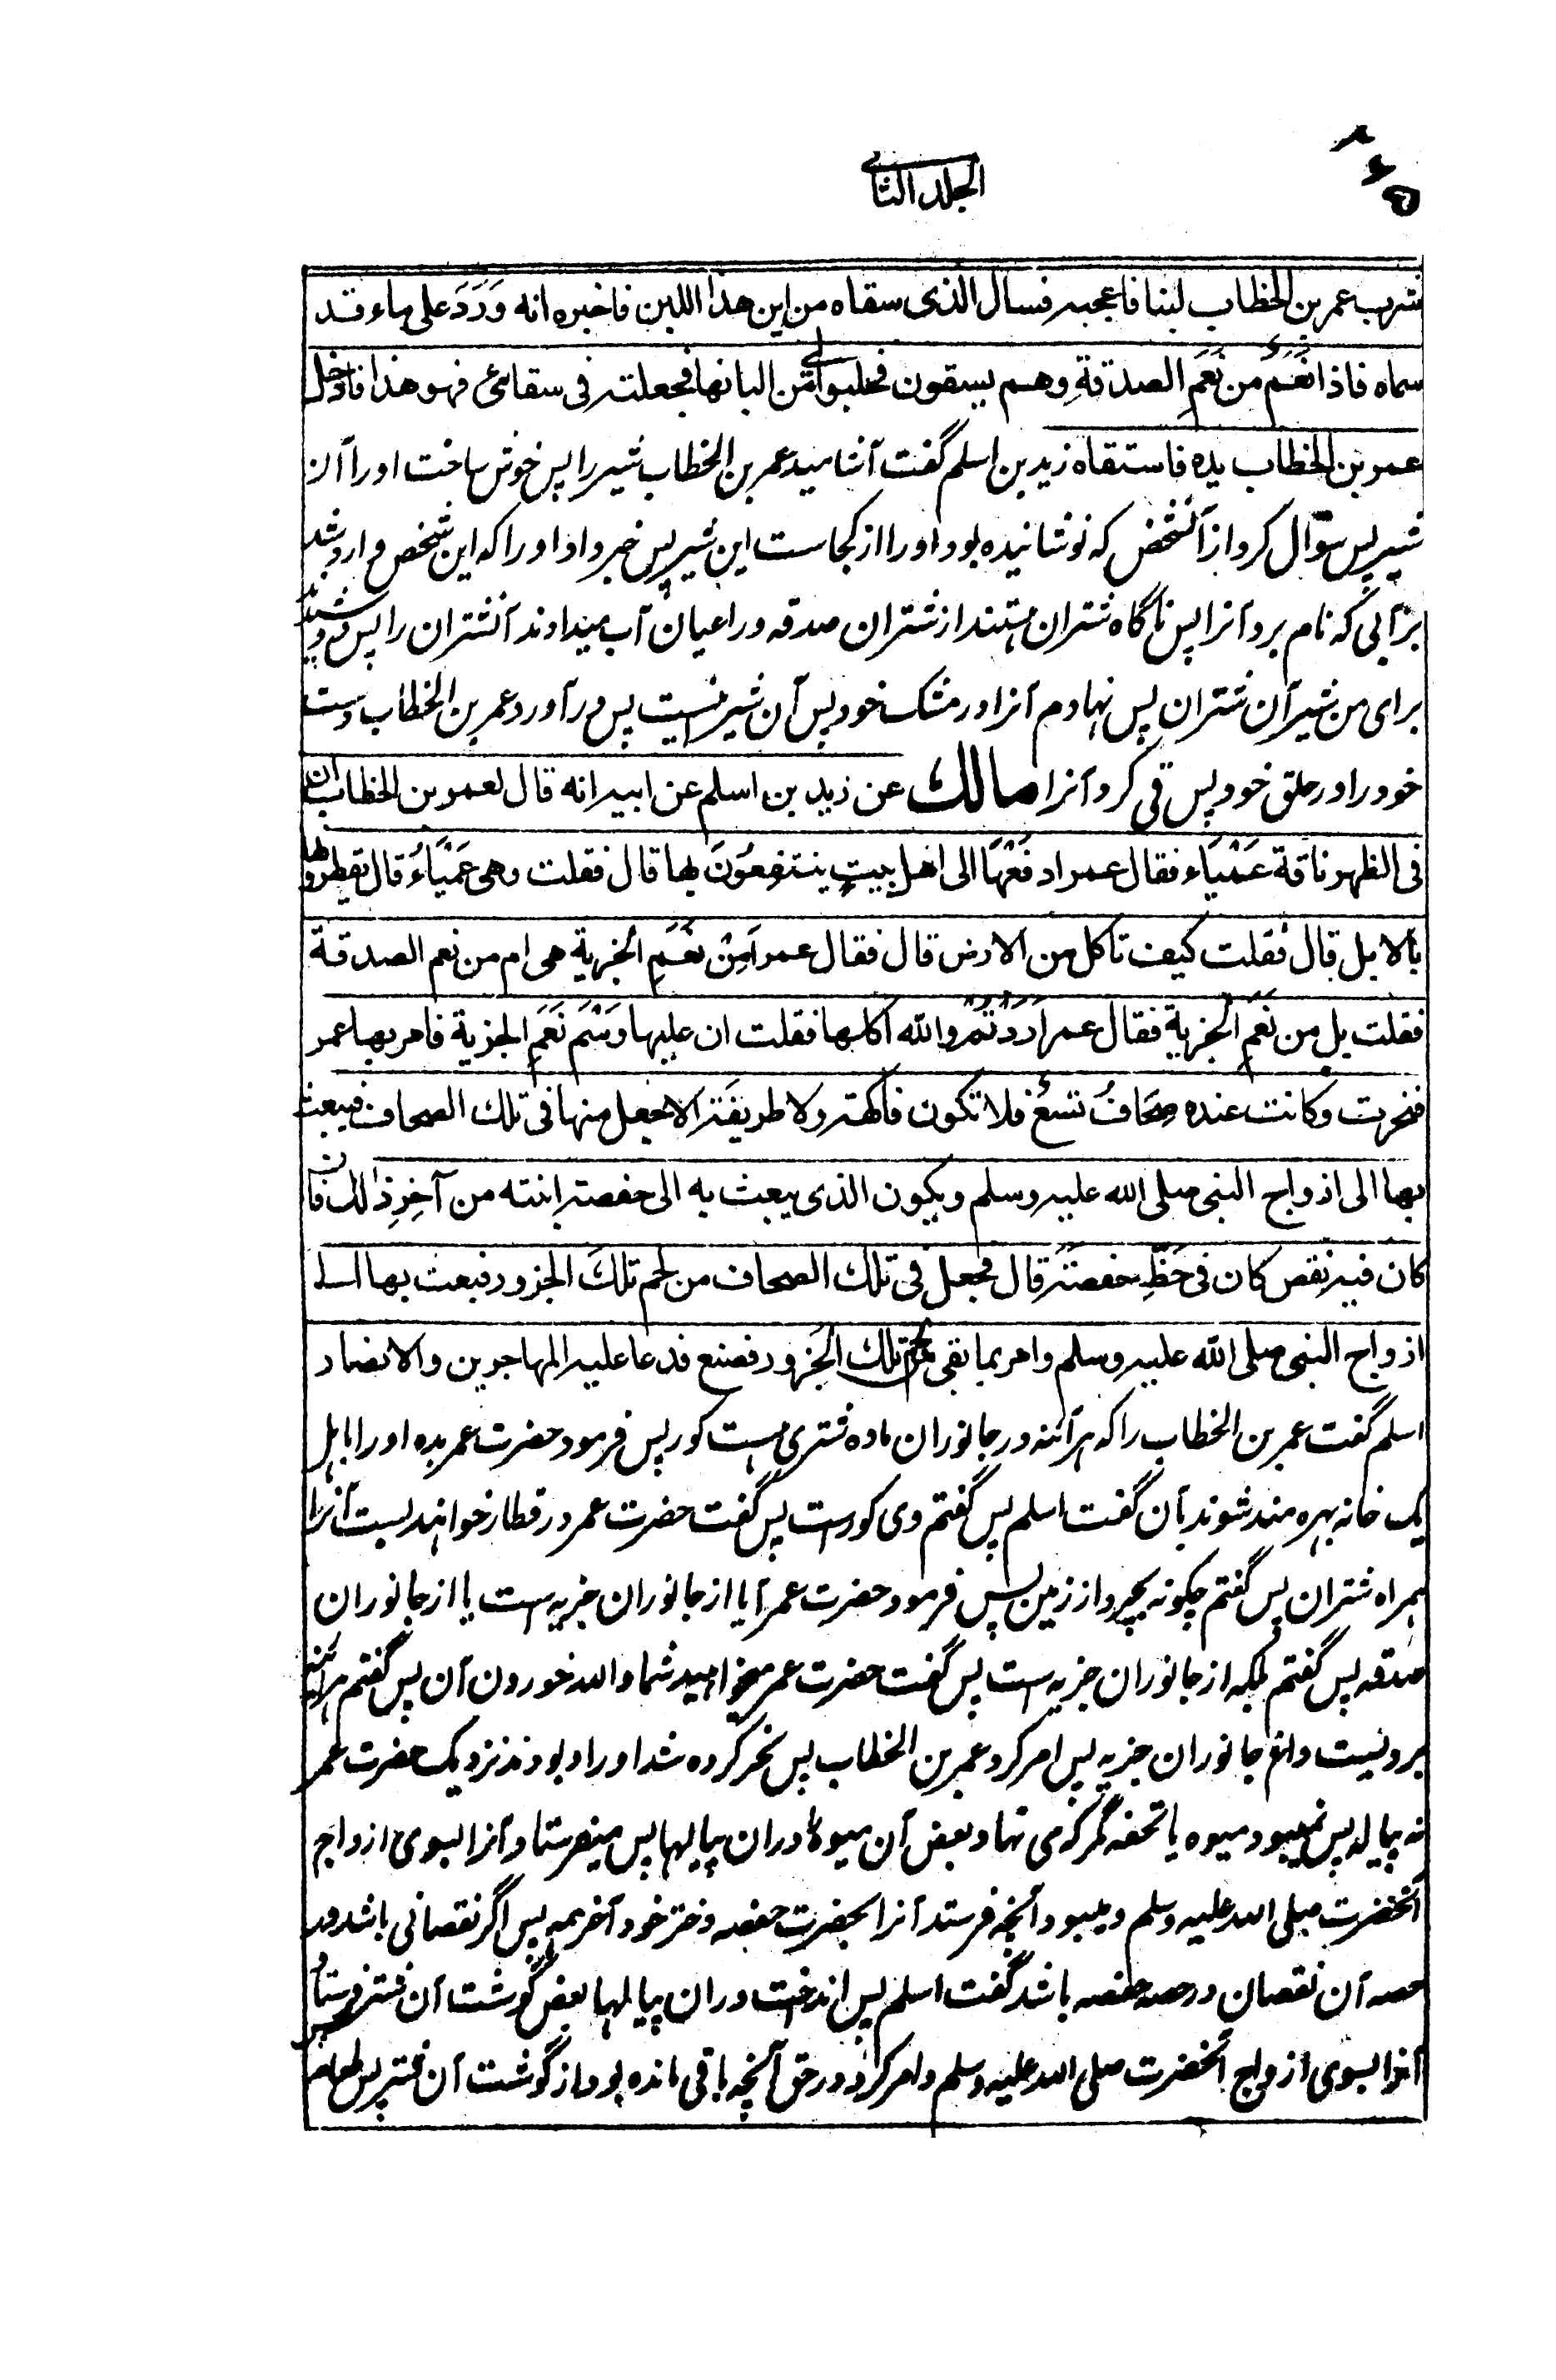 الجلد الثانی
شرب عمر بن الخطاب لبنا فاعجبه فسال الذی سقاه من این هذا اللبن فاخبره انه وَرَدَ علی ماء قد
سماه فاذا نَعَمٌ من نَعَمِ الصدقةِ وهم یسقون فحلبوا لی من البانها فجعلته فی سقائی فهو هذا فادخل
عمر بن الخطاب یده فاستقاه زید بن اسلم گفت آشامید عمر بن الخطاب شیر را پس خوش ساخت اورا آن
شیر پس سوال کرد از آنشخص که نوشانیده بود اورا از کجاست این شیر پس خبر داد اورا که این شخص وارد شد
بر آبی که نام برد آنرا پس ناگاه شتران هستند از شتران صدقه و راعیان آب میدادند آنشتران را پس دوشیدند
برای من شیر آن شتران پس نهادم آنرا در مشک خود پس آن شیر اینست پس در آورد عمر بن الخطاب دست
خود را در حلق خود پس قی کرد آنرا مالك عن زید بن اسلم عن ابیه انه قال لعمر بن الخطاب ان
فی الظهر ناقة عَمْیَاء فقال عمر ادفَعْهَا الی اهل بیتٍ ینتفِعُوْنَ بها قال فقلت وهی عَمْیَاءُ قال یقطرونها
بالابل قال فقلت کیف تاکل من الارض قال فقال عمر اَمِنْ نَعَمِ الجزیة هی ام من نعم الصدقة
فقلت بل من نَعَمِ الجزیة فقال عمر اَرَدْتُمْ والله اکلها فقلت ان علیها وَسْمَ نَعَمِ الجزیة فامر بها عمر
فنحرت وکانت عنده صِحَافٌ تسعٌ فلا تکون فاکهة ولا طریفة الا جعل منها فی تلك الصحاف فیبعث
بها الی ازواج النبی صلی الله علیه وسلم ویکون الذی یبعث به الی حفصة ابنته من آخِرِ ذالك فان
کان فیه نقص کان فی حَظِّ حفصةَ قال فجعل فی تلك الصحاف من لحم تلكَ الجزور فبعث بها الی
ازواج النبی صلی الله علیه وسلم وامر بما بقی من لحم تلك الجَزور فصنع فدعا علیه المهاجرین والانصار
اسلم گفت عمر بن الخطاب را که هر آئنه در جانوران ماده شتری هست کور پس فرمود حضرت عمر بده اورا باهل
یک خانه بهره مند شوند بآن گفت اسلم پس گفتم وی کورست پس گفت حضرت عمر در قطار خواهند بست آنرا
همراه شتران پس گفتم چگونه بچرد از زمین پس فرمود حضرت عمر آیا از جانوران جزیه است یا از جانوران
صدقه پس گفتم بلکه از جانوران جزیه است پس گفت حضرت عمر میخواهید شما والله خوردن آن پس گفتم هرآئینه
برویست داغ جانوران جزیه پس امر کرد عمر بن الخطاب پس نحر کرده شد اورا و بودند نزدیک حضرت عمر
نه پیاله پس نمیبود میوه یا تحفه مگر که می نهاد بعض آن میوه ها دران پیالها پس میفرستاد آنرا بسوی ازواج
آنحضرت صلی الله علیه وسلم ومیبود آنچه فرستد آنرا بحضرت حفصه دختر خود آخر همه پس اگر نقصانی باشد در
حصه آن نقصان در حصه حفصه باشد گفت اسلم پس انداخت دران پیالها بعض گوشت آن شتر پس فرستاد
آنرا بسوی ازواج آنحضرت صلی الله علیه وسلم وامر کرد در حق آنچه باقی مانده بود از گوشت آن شتر پس طعام